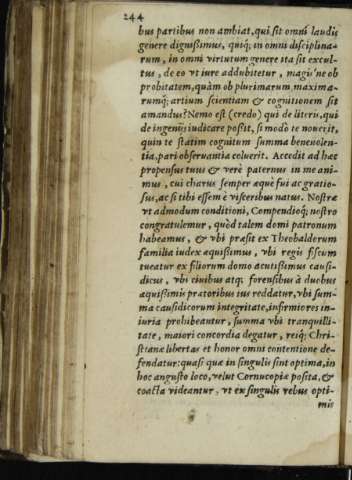 244
bus partibus non ambiat, qui sit omni laudis
genere dignißimus, quiq; in omni disciplina-
rum, in omni virtutum genere ita sit excul-
tus, de eo vt iure addubitetur, magis'ne ob
probitatem, quàm ob plurimarum, maxima-
rumq; artium scientiam & cognitionem sit
amandus? Nemo est (credo) qui de literis, qui
de ingeniis iudicare poßit, si modò te nouerit,
quin te statim cognitum summa beneuolen-
tia, pari obseruantia coluerit. Accedit ad hæc
propensus tuus & verè paternus in me ani-
mus, cui charus semper æquè fui ac gratio-
sus, ac si tibi essem è visceribus natus. Nostræ
vt admodum conditioni, Compendioq; nostro
congratulemur, quòd talem domi patronum
habeamus, & vbi præsit ex Theobaldorum
familia iudex æquißimus, vbi regis fiscum
tueatur ex filiorum domo acutißimus causi-
dicus, vbi ciuibus atq; forensibus à duobus
æquißimis prætoribus ius reddatur, vbi sum-
ma causidicorum integritate, infirmiores in-
iuria prohibeantur, summa vbi tranquilli-
tate, maiori concordia degatur, reiq; Chri-
stianæ libertas et honor omni contentione de-
fendatur: quasi quæ in singulis sint optima, in
hoc angusto loco, velut Cornucopiæ posita, &
coacta videantur, vt ex singulis rebus opti-
mis